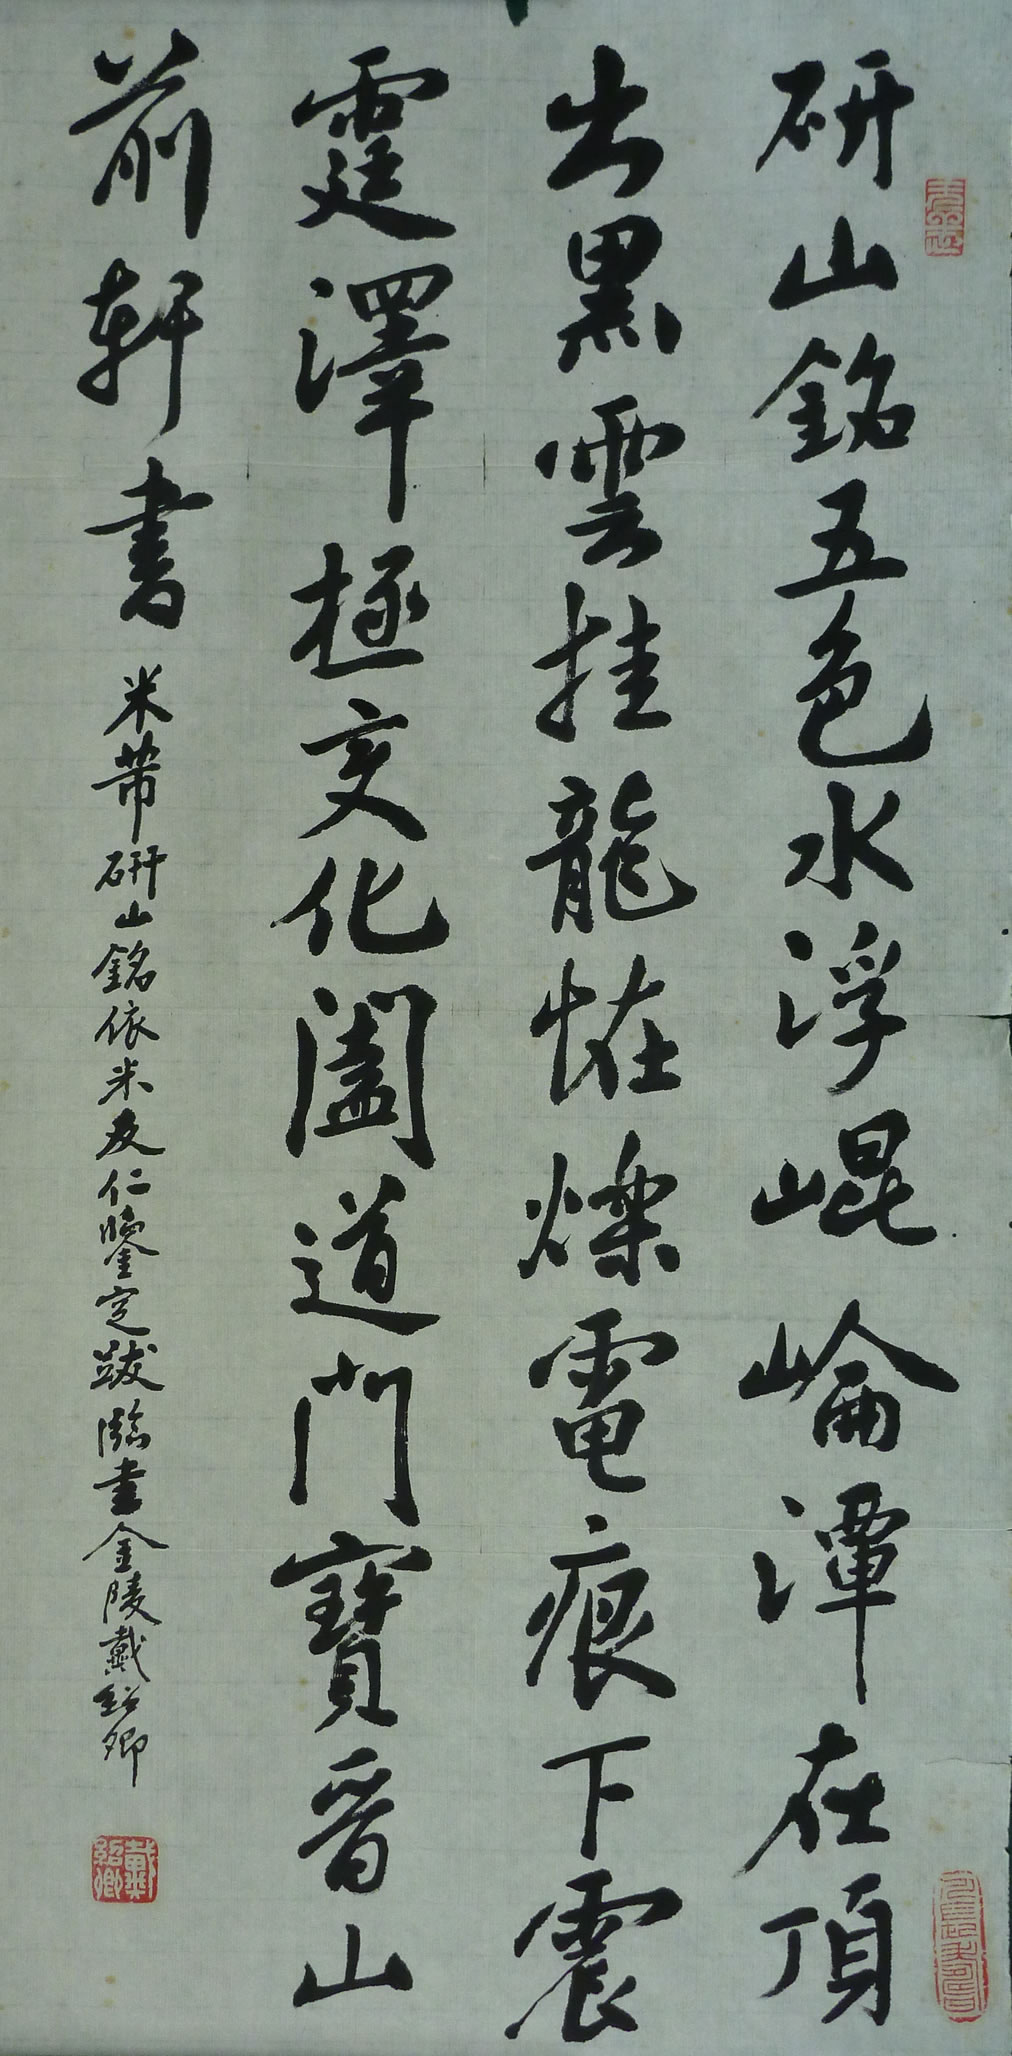 研山銘五色水浮崐崘潭在頂
出黑雲挂龍恠爍電痕下震
霆澤極變化闔道門寶晉山
前軒書
米芾研山銘依米友仁鑒定跋臨書金陵戴紹卿
戴紹卿